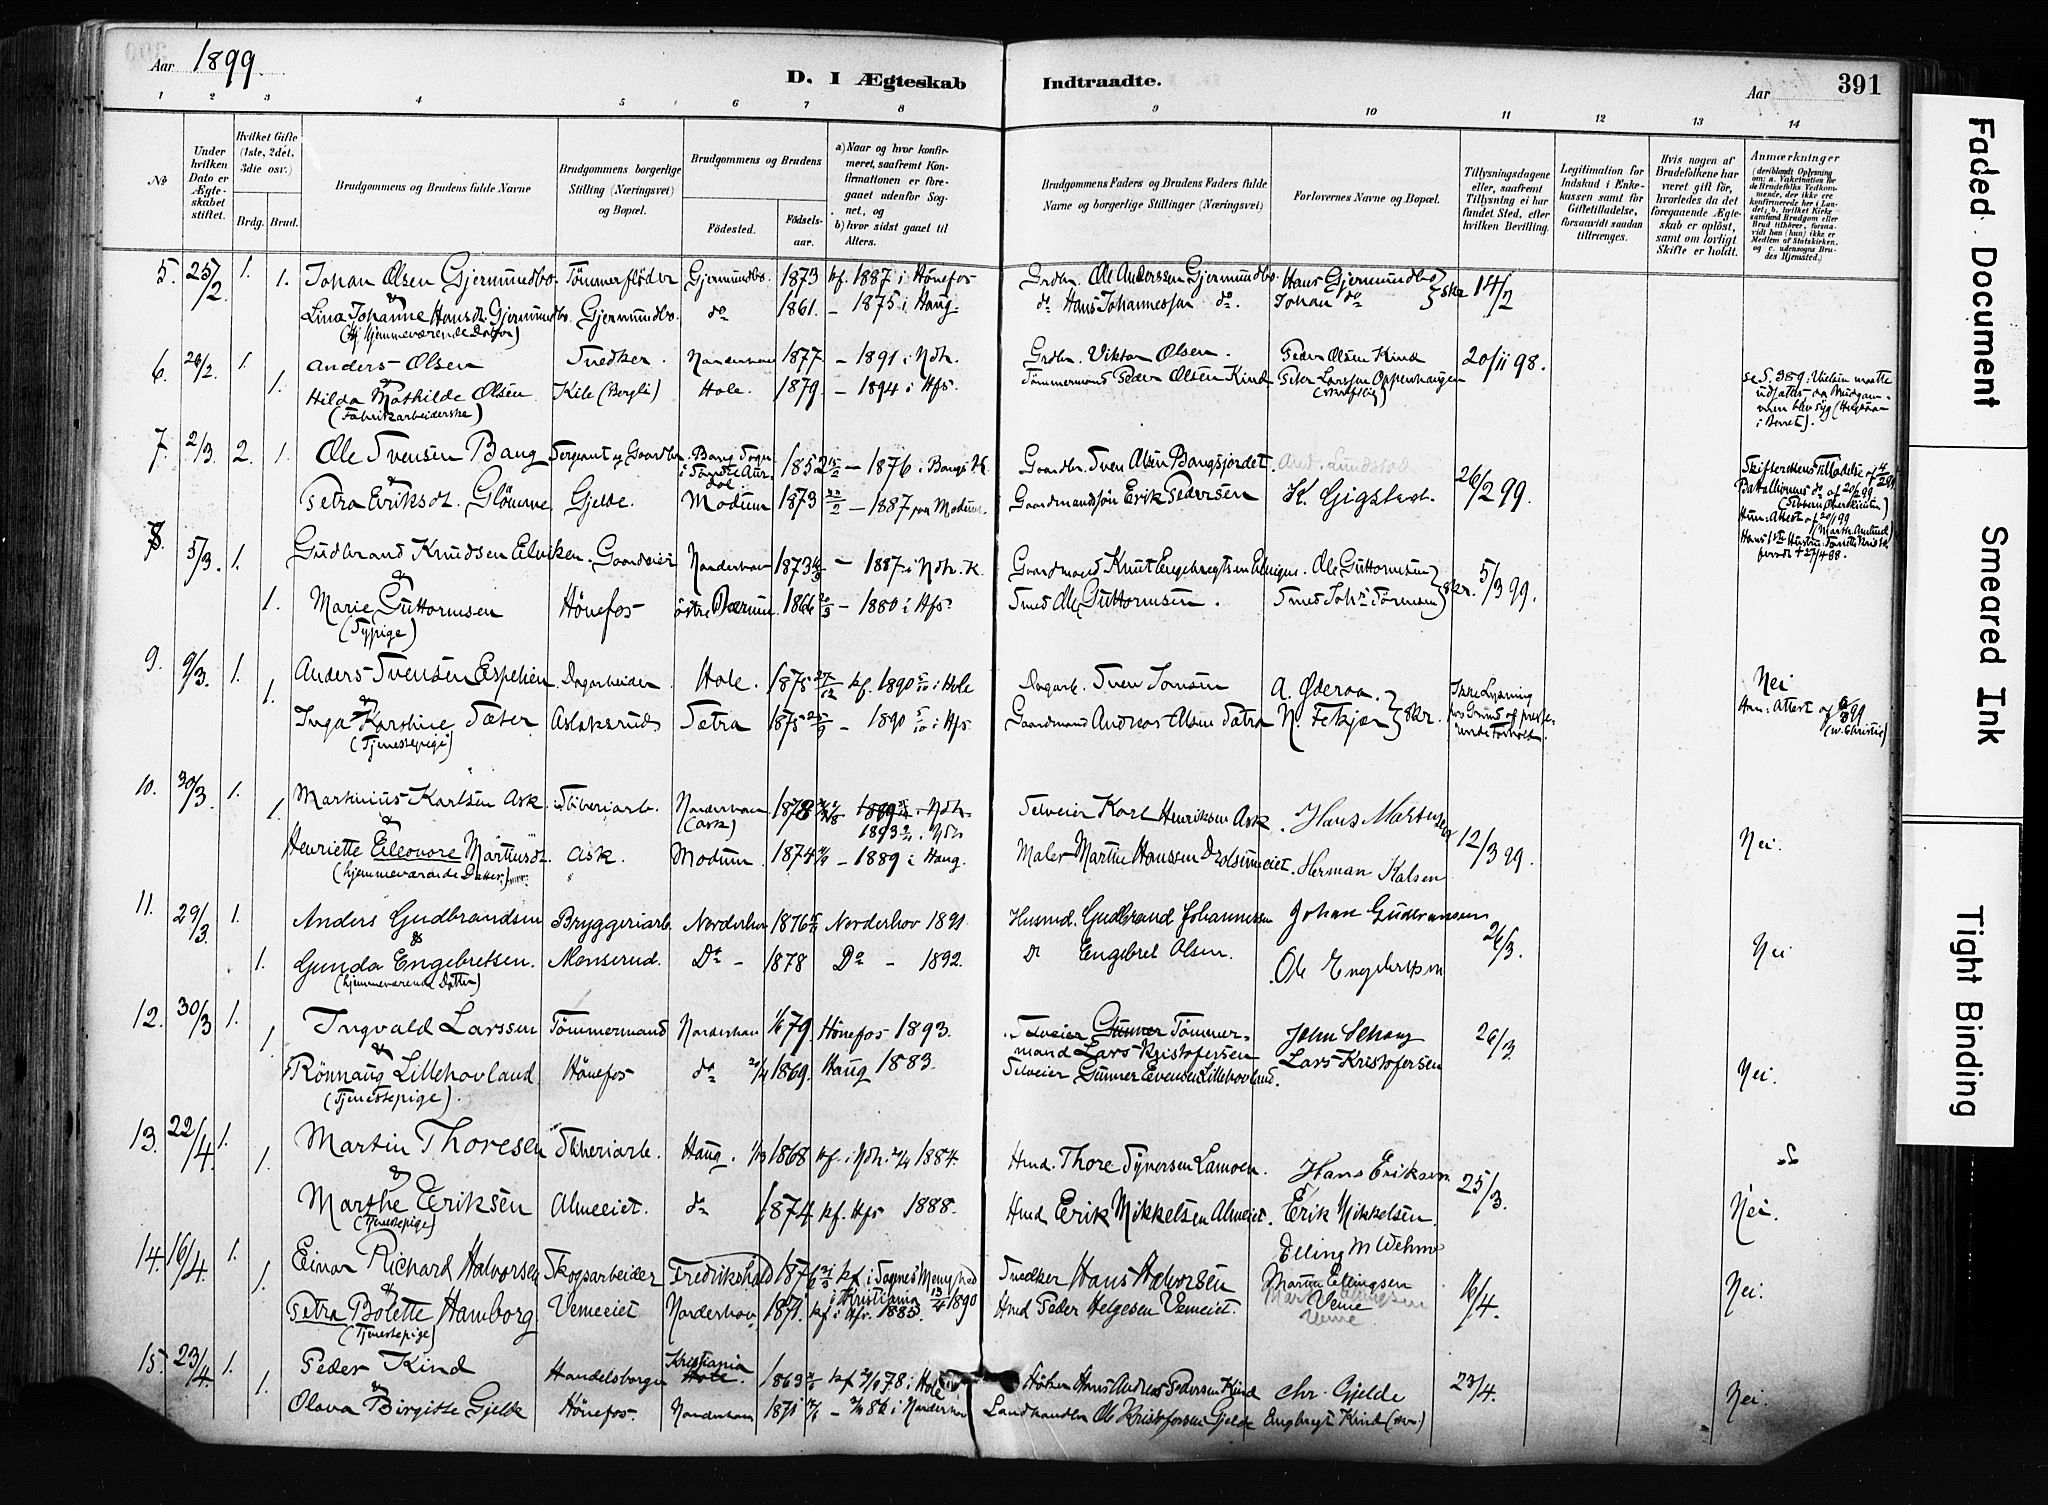 Aar 1899.
D. I Ægteskab Indtraadte.
Aar
391
1 2 3 4 5 6 7 8 9 10 11 12 13 14
No
Under hvilken Dato er Ægteskabet stiftet.
Hvilket Gifte (1ste, 2det, 3die osv.)
Brdg. Brud.
Brudgommens og Brudens fulde Navne
Brudgommens borgerlige Stilling (Næringsvei) og Bopæl.
Brudgommens og Brudens
Fødested. Fødselsaar.
a) Naar og hvor konfirmeret, saafremt Konfirmationen er foregaaet udenfor Sognet, og
b) hvor sidst gaaet til Alters.
Brudgommens Faders og Brudens Faders fulde Navne og borgerlige Stillinger (Næringsvei)
Forlovernes Navne og Bopæl.
Tillysningsdagene eller, saafremt Tillysning ei har fundet Sted, efter hvilken Bevilling.
Legitimation for Indskud i Enkekassen samt for Giftetilladelse, forsaavidt saadan tiltrænges.
Hvis nogen af Brudefolkene har været gift før, hvorledes da det foregaaende Ægteskab er opløst, samt om lovligt Skifte er holdt.
Anmærkninger
5. 25/2 1. Johan Olsen Gjermundbo. Tömmerflöder Gjermundbo. 1873 kf. 1887 i Hönefos Grdbr. Ole Anderssen Gjermundbo. Hans Gjermundbo
1. Lina Johanne Hansdt. Gjermundbo. Gjermundbo. do 1861. - 1875 i Haug. do. Hans Johannessen do. Johan do } skr 14/2
6. 26/2. 1. Anders Olsen Snedker. Norderhov 1877 - 1891 i Ndh. Grdbr. Viktor Olsen. Peder Olsen Kind 20/11 98.
1. Hilda Mathilde Olsen Kile (Bergli) Hole. 1879. - 1894 i Hfs. Tömmermand Peder Olsen Kind Peter Larssen Oppenhaugen
(Fabrikarbeiderske) (skriftlig)
7. 2/3. 2. 1. Ole Svensen Bang Sergeant og Gaardbr. Bang Sogn i Söndre Aurdal. 1852 - 1876 i Bangs K. Gaardbr. Sven Olsen Bangsjordet.
Petra Eriksdt. Glömme Gjelde. Modum 1873 - 1887 paa Modum. Gaardmandssön Erik Pedersen K. Gigstad. 26/2 99.
8. 5/3. 1. Gudbrand Knudsen Elviken. Gaardeier Norderhov 1873 - 1887 i Ndh. K. Gaardmand Knut Engebregtsen Elvigen. Ole Guttormsen
& 5/3 99.
1. Marie Guttormsen Hönefos östre Bærum 1866 - 1880 i Hfs. Smed Ole Guttormsen.
(Sypige)
9. 9/3. 1. Anders Svensen Espelien. Dagarbeider Hole. 1875 27/12 kf. 1890 5/10 i Hole Dagarb. Sven Jonsen A. Øderaa. Nei
1. Inga Karstine Sæter Aslaksrud Sætra 1875 - 1890 5/10 i Hfs. Gaardmand Andreas Olsen Sætra N. Fekjær } skr.
(Tjenestepige)
10. 30/3. 1. Martinius Karlsen Ask. Sliberiarb. Norderhov (Ask) 1878 1893 i Ndh. Selveier Karl Henriksen Ask. Hans Martinsen
1. Henriette Eleonore Martinsdt. Ask. Modum. 1874 - 1889 i Haug. Maler Martin Hanssen Herman Kalsen 12/3 99. Nei.
(hjemmeværende Datter)
11. 29/3. 1. Anders Gudbrandsen Bryggeriarb. Norderhov 1876 Norderhov 1891 Husmd. Gudbrand Johannessen Johan Gudbransen
&
1. Gunda Engebretsen. Monserud. Do - 1878 Do - 1892. Do Engebret Olsen. Ole Engebretsen 26/3. Nei
(hjemmeværende Datter)
12. 30/3 1. Ingvald Larssen Tömmermand Norderhov 1/6 79. Hönefos 1893. Selveier Gunner Tömmermand Lars Kristofersen John Schong 26/3
1. Rönnaug Lillehovland. Hönefos do 1869. Haug 1883. Selveier Gunner Evensen Lillehovland. Lars Kristofersen Nei.
(Tjenestepige).
13. 22/4. 1. Martin Thoresen Sliberiarb. Haug. 1868 kf. i Ndh. 1884. Hmd. Thore Syversen Lamoen. Hans Eriksen
1. Marthe Eriksen Almeeiet. do 1874 kf. Hfs 1888. Hmd Erik Mikkelsen Almeiet. Erik Mikkelsen. 25/3. Nei.
(Tjenestepige)
14. 16/4. 1. Einar Richard Halvorsen Skogsarbeider Fredrikshald 1876 kf. i Sagnes Menighed i Kristiania 13/4 1890 Snedker Hans Halvorsen Elling M Wehme
1. Petra Bolette Hamborg Vemeeiet Norderhov 1871. kf i Hfs. 1885. Hmd Peder Helgesen Vemeiet. Martin Ellingsen Veme 16/4. Nei.
(Tjenestepige)
15. 23/4. 1. Peder Kind Handelsborger Kristiania Hole. 1863 kf 78 i Hole Höker Hans Andreas Pedersen Kind Chr. Gjelde 23/4.
1. Olava Birgitte Gjelde Hönefos. Norderhov 1871 - 86 i Norderhov Landhandler Ole Kristoffersen Gjelde Engbregt Kind Nei.
Faded Document
Smeared Ink
Tight Binding